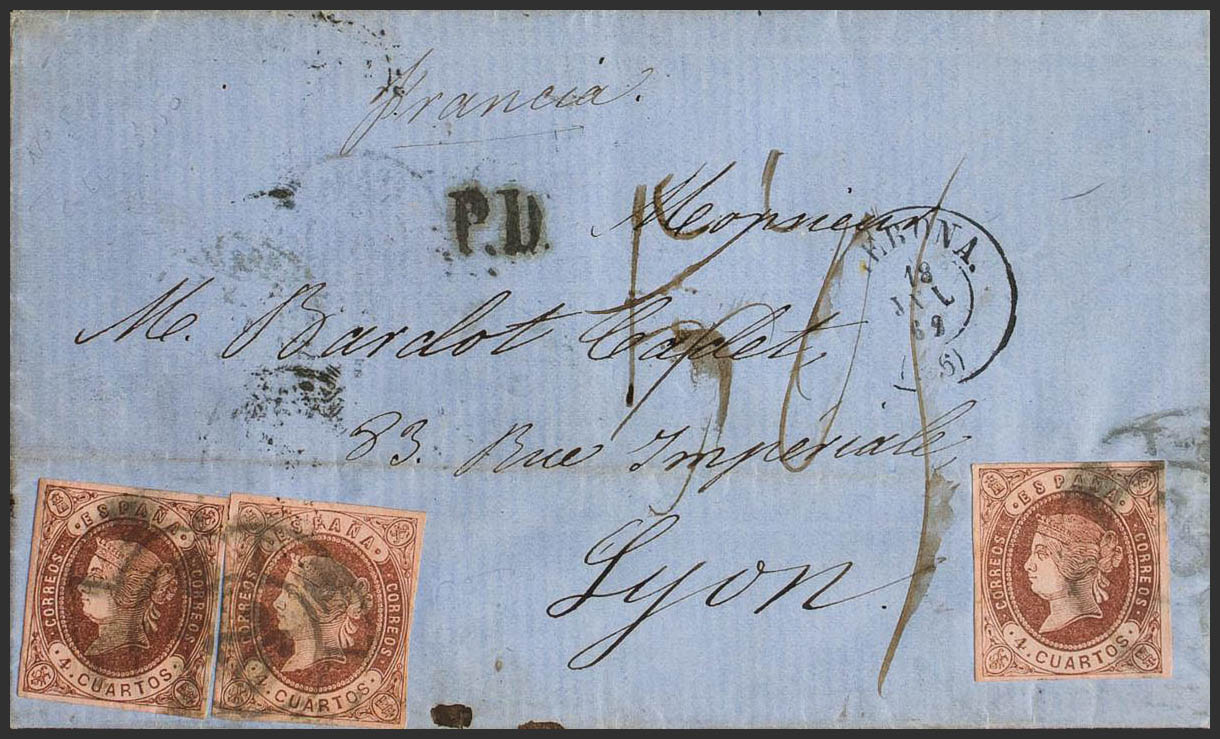 Francia.
P.D.
Monsieur
ERONA.
18
JUL
M. Bardot Cadet,
83. Rue Imperiale,
Lyon.
ESPAÑA
CORREOS
CORREOS
4 CUARTOS
ESPAÑA
CORREOS
CORREOS
4 CUARTOS
ESPAÑA
CORREOS
CORREOS
4 CUARTOS